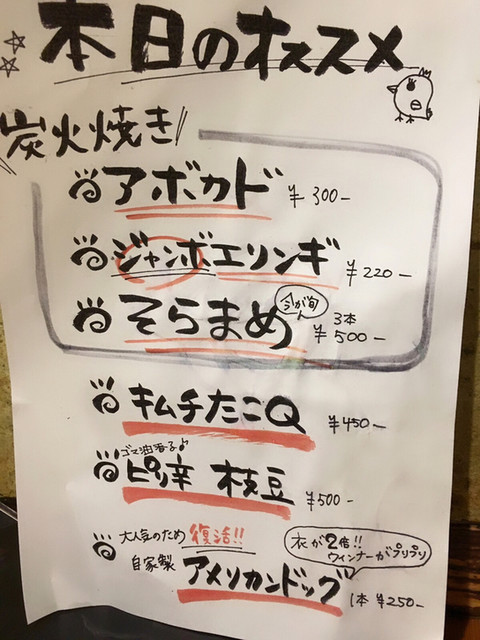 本日のオススメ
炭火焼き
アボカド ¥300-
ジャンボエリンギ ¥220-
今が旬
そらまめ 3本 ¥500-
キムチたこQ ¥450-
ゴマ油香る♪
ピリ辛 枝豆 ¥500-
大人気のため 復活!!
衣が2倍!!
ウインナーがプリプリ
自家製 アメリカンドッグ 1本 ¥250-